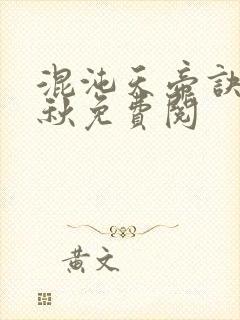 混沌天帝訣
秋免費閱
黃文